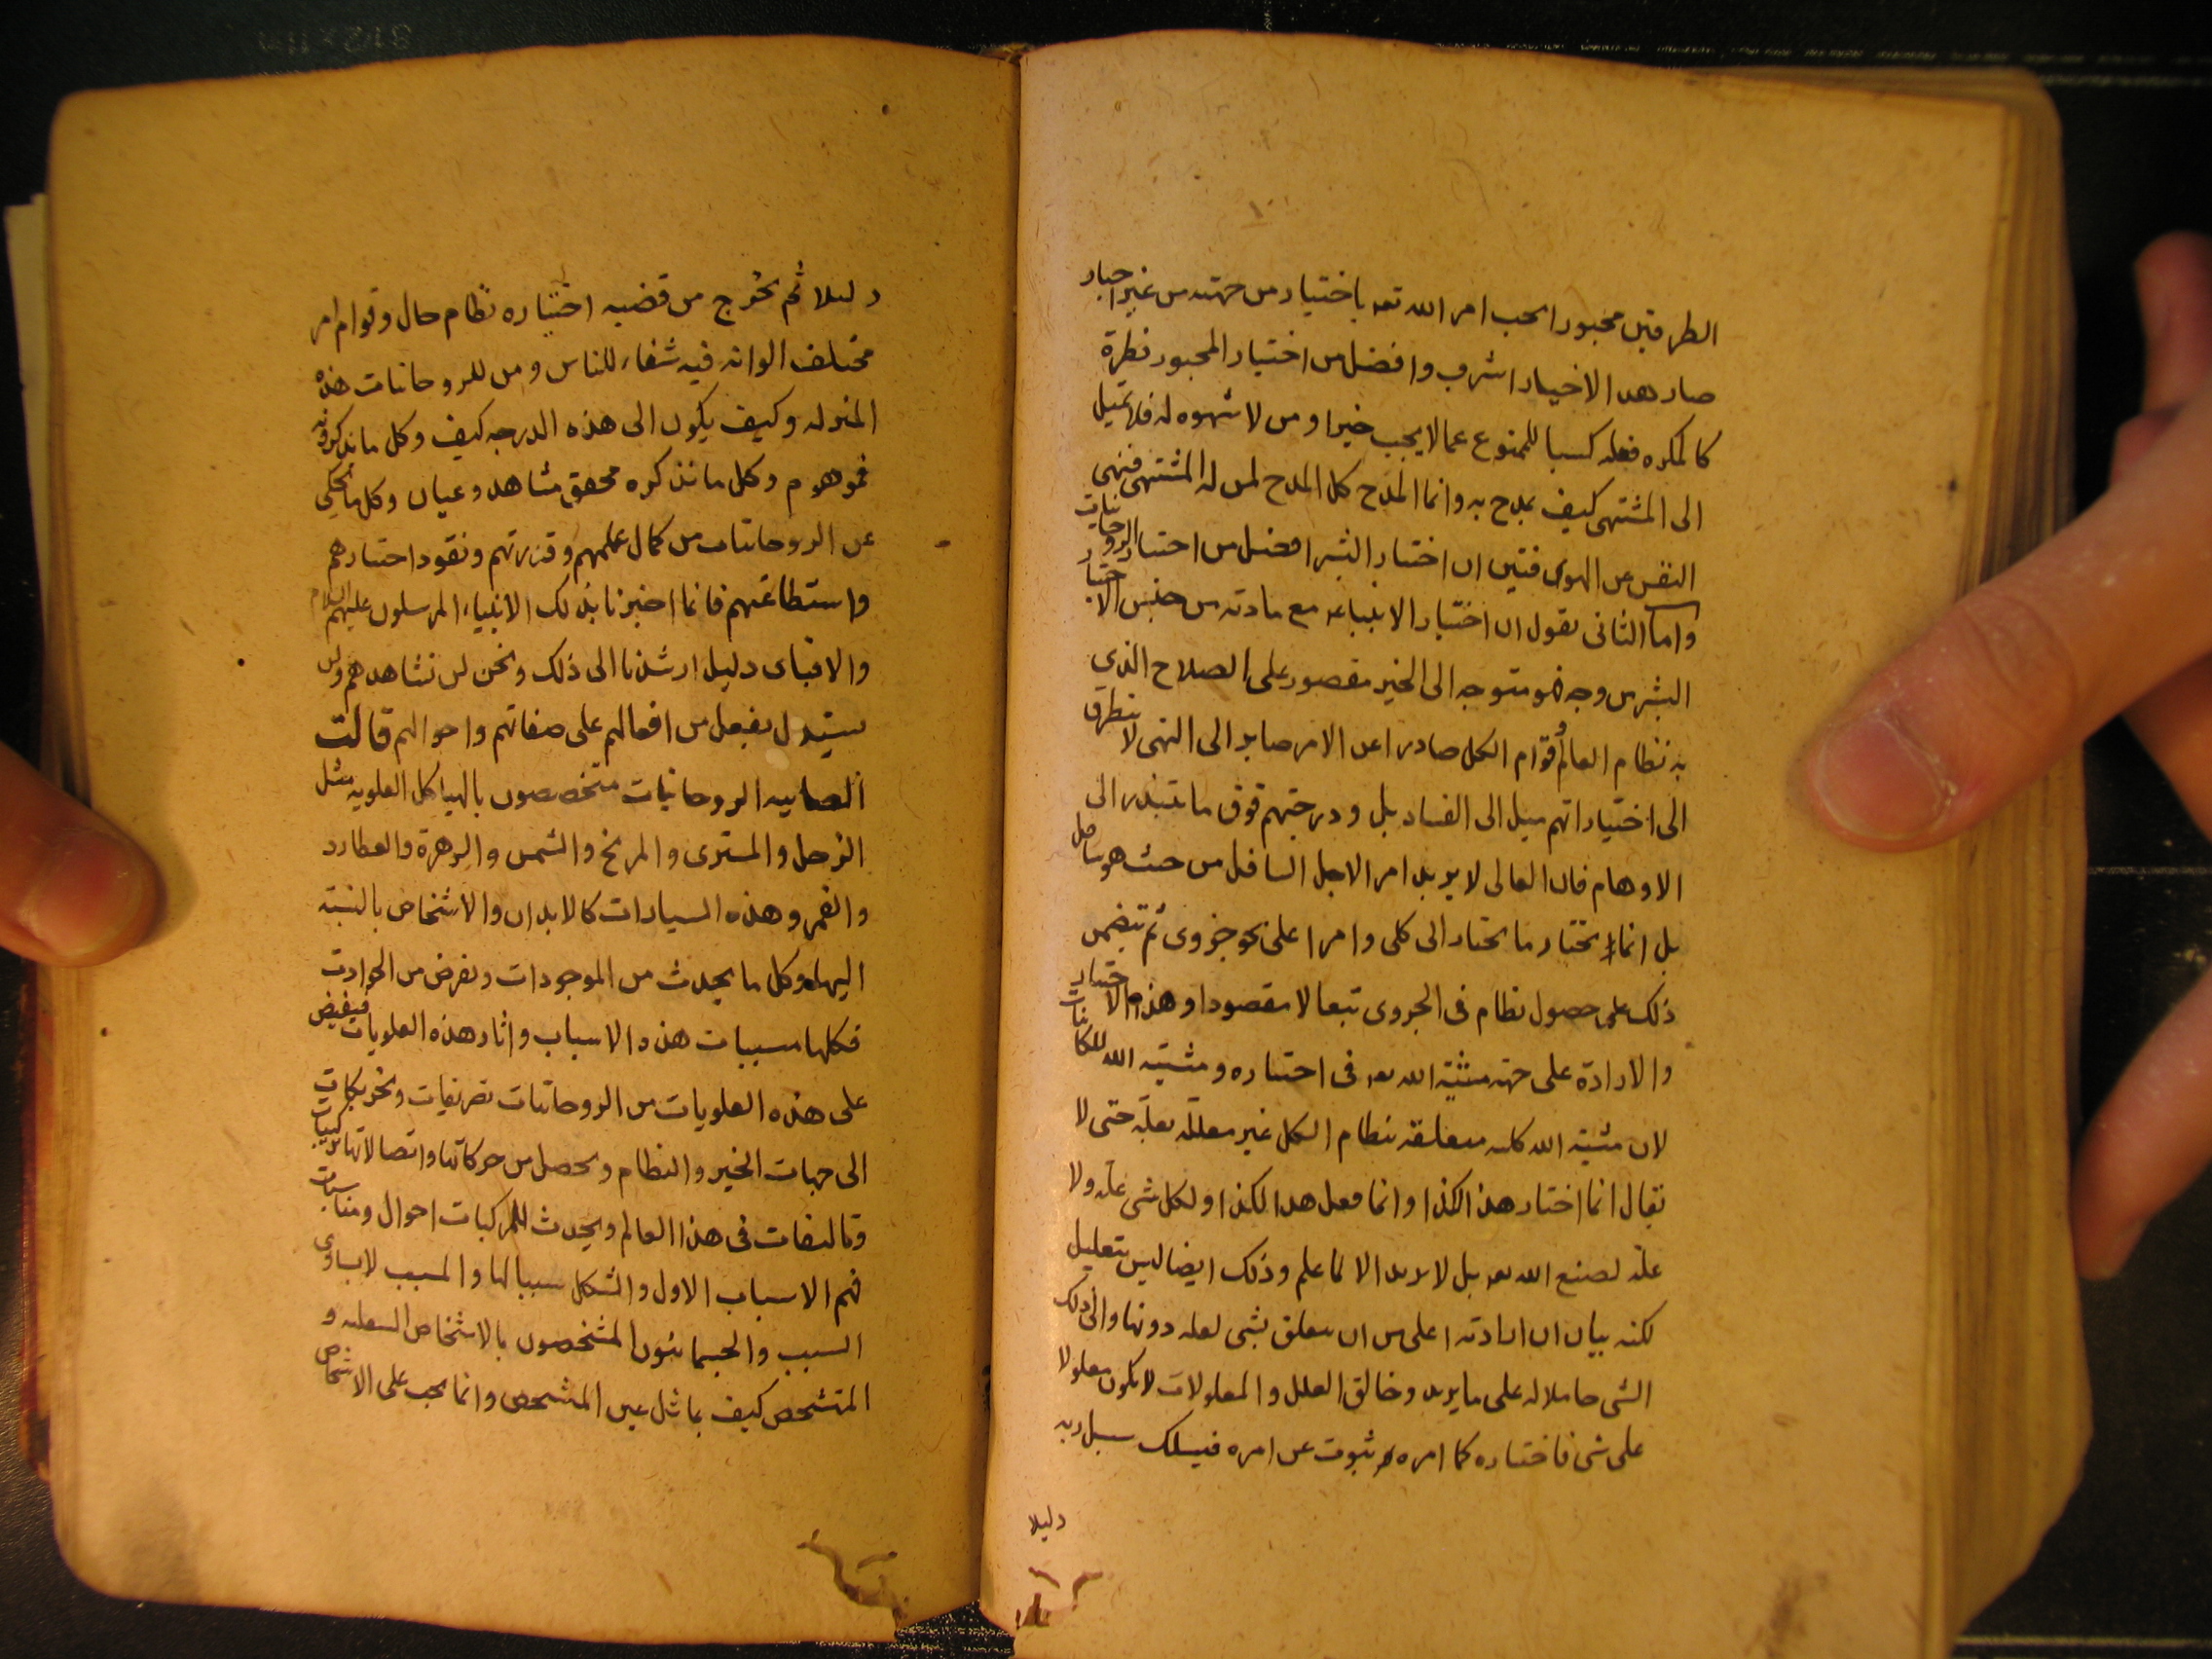 الطرفين مجبور الحب امر الله تعه باختيار من جهته من غير اجبار
صار هدا الاختيار اشرف وافضل من اختيار المجبور فطرة
كالمكره فعله كسبا للممنوع عما لا يجب خيرا ومن لا شهوه له فلا تميل
الى المشتهى كيف يمدح به وانما المدح كل المدح لمن له المشتهى فنهى
النفس عن الهوى فتبين ان اختيار البشر افضل من اختيار الروحانيات
واما الثانى نقول ان اختيار الانبياء مع مادته من جنس الاختيار
البشر من وجه فهو متوجه الى الخير مقصور على الصلاح الذى
به نظام العالم أقوام الكل صادرا عن الامر صاير الى النهى لا يتطرق
الى اختياراتهم ميل الى الفساد بل ودرجتهم فوق ما يتبدر الى
الاوهام فان العالى لا يريد امرا لاجل السافل من حيث هو سافل
بل انما يختار ما يختار الى كلى وامرا على نحو جزوى ثم يتضمن
ذلك على حصول نظام فى الجزوى تبعا لا مقصودا وهذه الاختيار
والارادة على جهة مشية الله تعه فى اختياره ومشيته الله للكاينات
لان مشية الله كليه متعلقه بنظام الكل غير معللة بعلة حتى لا
يقال انما اختار هذا لكذا وانما فعل هدا لكذا ولكل شى علة ولا
علة لصنع الله تعه بل لا يريد الا لما علم وذلك ايضا ليس بتعليل
لكنه بيان ان ارادته اعلى من ان يتعلق بشى لعله دونها والى ذلك
الشى حاملا له على ما يريد وخالق العلل والمعلولات لا يكون معلولا
على شى فاختياره كما امره ثبوت عن امره فيسلك سبل ربه
دليلا
دليلا ثم يخرج من قضيه اختياره نظام حال وقوام امر
مختلف الوانه فيه شفاء للناس ومن للروحانيات هذه
المنزله وكيف يكون الى هذه الدرجه كيف وكل ما يذكرونه
فموهوم وكل ما نذكره محقق مشاهد وعيان وكل ما يحكى
عن الروحانيات من كمال علمهم وقدرتهم ونفود اختيارهم
واستطاعتهم فانما اخبرنا بذلك الانبياء المرسلون عليهم السلام
والا فباى دليل ارشدنا الى ذلك ونحن لن نشاهدهم ولن
يستدل بفعل من افعالهم على صفاتهم واحوالهم قالت
الصابيه الروحانيات متخصصون بالهياكل العلويه مثل
الزحل والمشترى والمريخ والشمس والزهرة والعطارد
والقمر وهذه السيارات كالابدان والاشخاص بالنسبة
اليها وكل ما يحدث من الموجودات ويفرض من الحوادت
فكلها مسببات هذه الاسباب واثار هذه العلويات فيفيض
على هذه العلويات من الروحانيات تصريفات وتحريكات
الى جهات الخير والنظام ويحصل من حركاتها واتصالاتها تركيبات
وتاليفات فى هذا العالم ويحدث للمركبات احوال ومناسبات
فهم الاسباب الاول والشكل سببا لها والمسبب لا يساوى
السبب والجسمانيون المشخصون بالاشخاص السفليه و
المتشخص كيف يماثل عين المشخص وانما يجب على الاشخاص